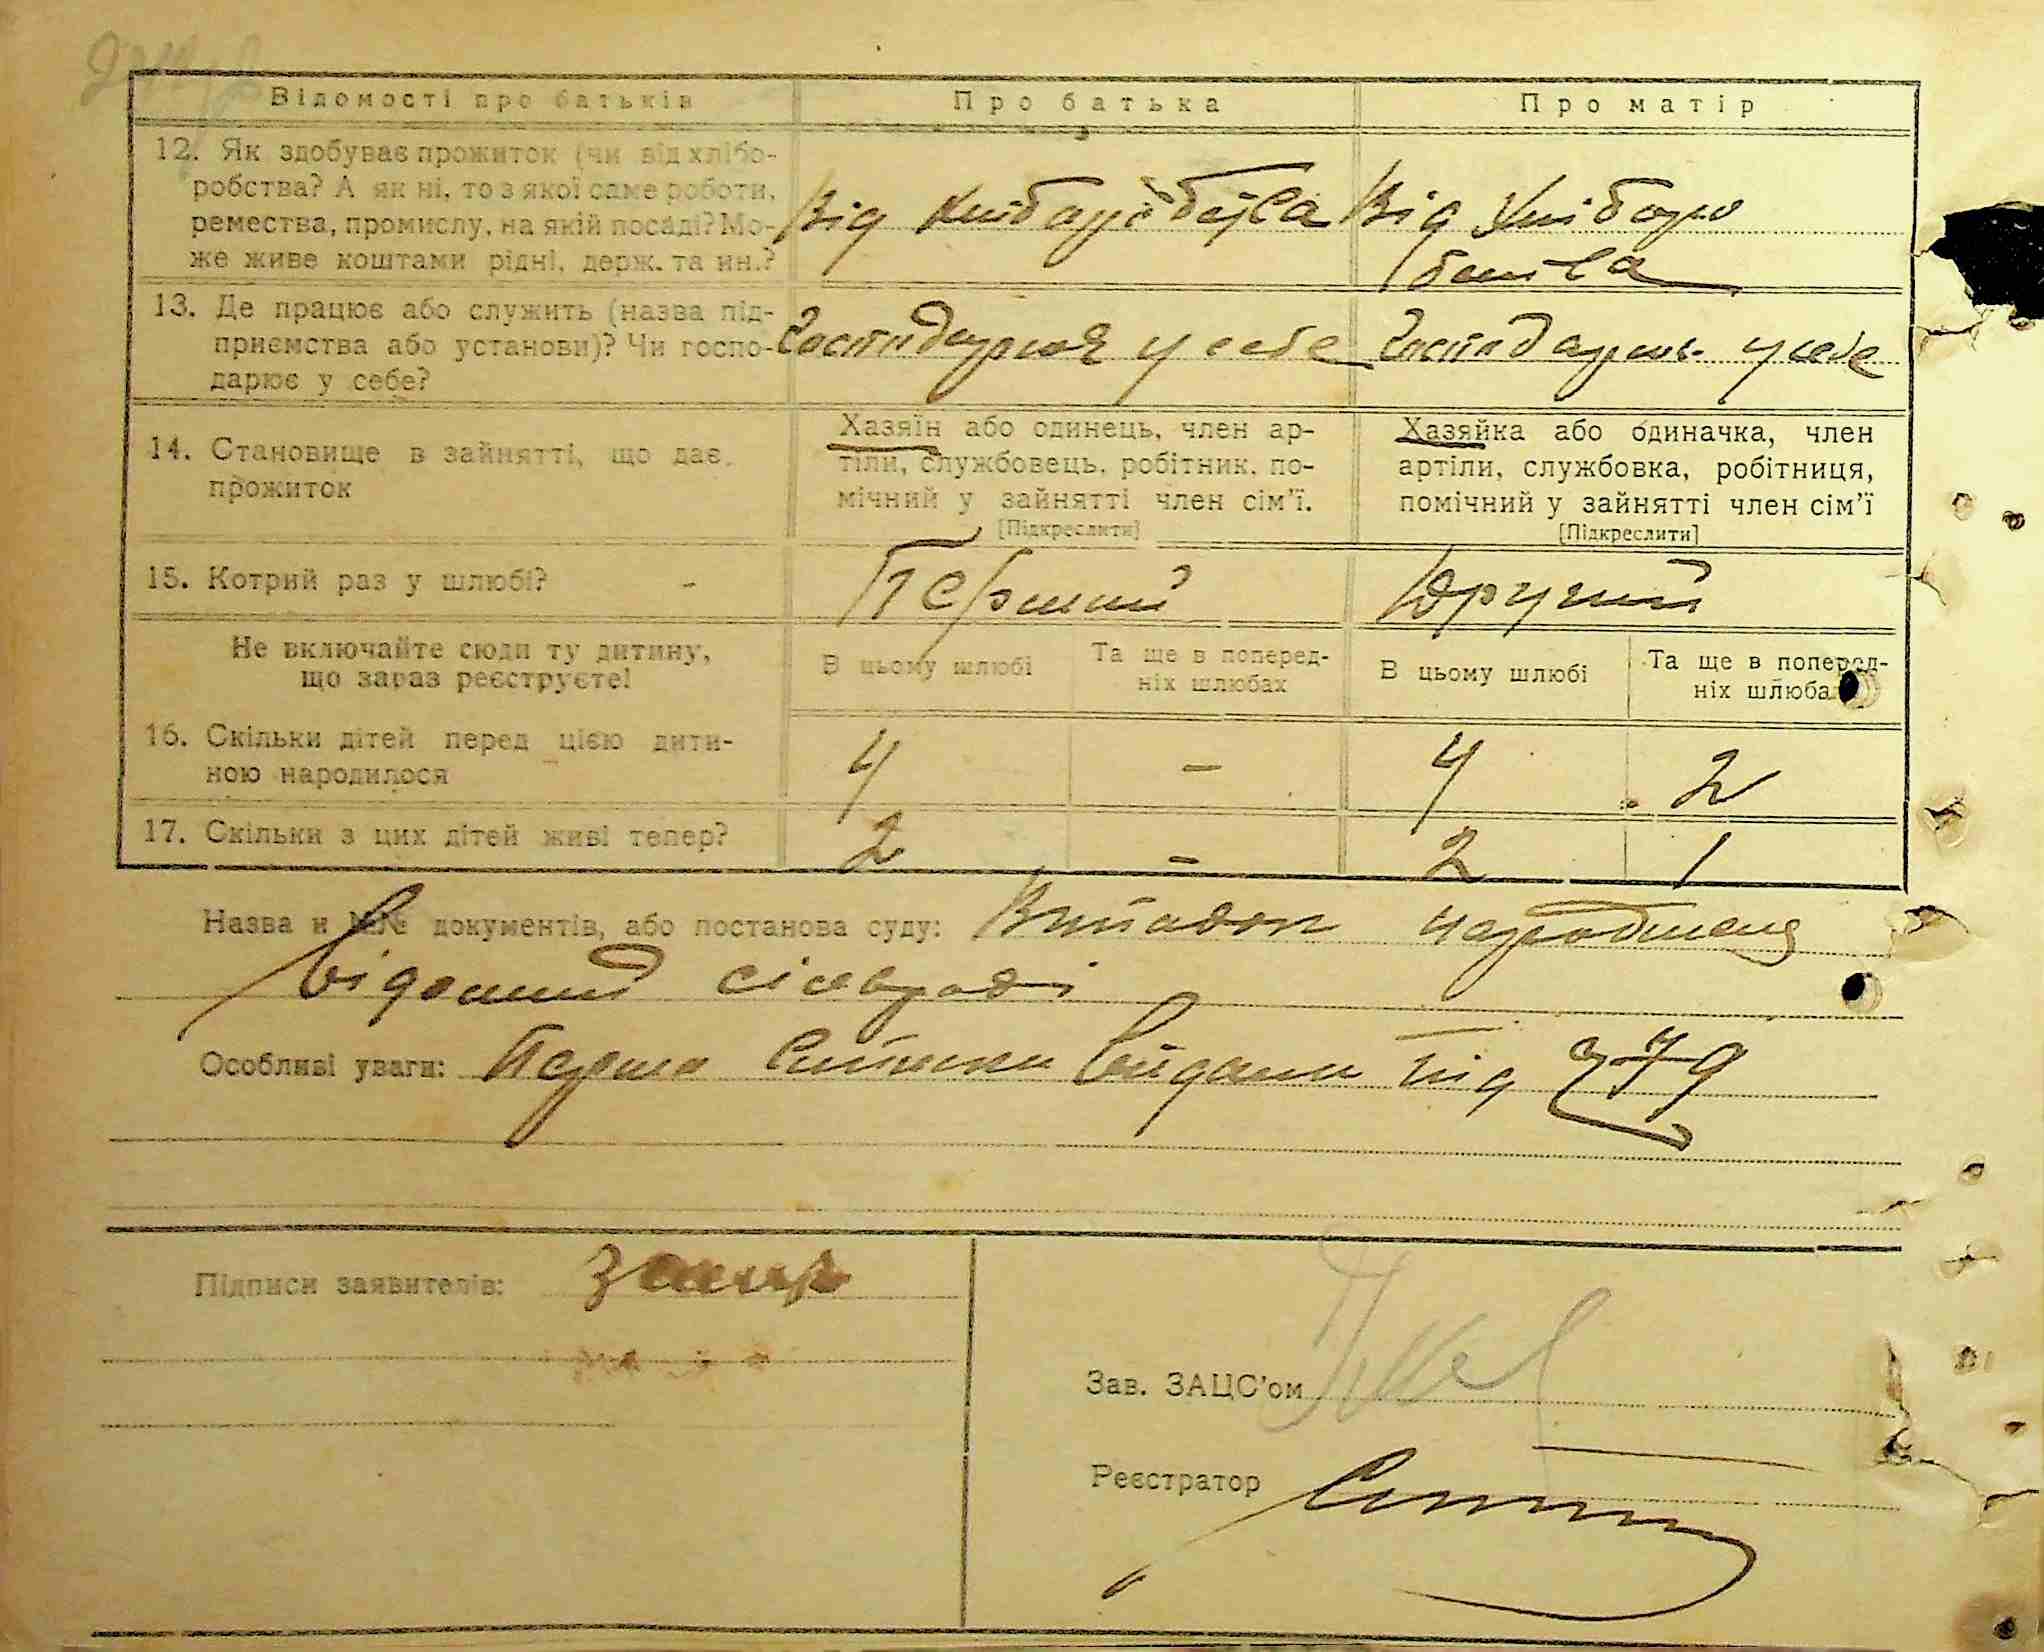 Відомості про батьків Про батька Про матір
12. Як здобуває прожиток (чи від хлібо-
робства? А як ні, то з якої саме роботи,
ремества, промислу, на якій посаді? Мо-
же живе коштами рідні, держ. та ин.?
Від хліборобства Від хліборо
бства
13. Де працює або служить (назва під-
приємства або установи)? Чи госпо-
дарює у себе?
Господарює у себе Господарює у себе
14. Становище в зайнятті, що дає
прожиток
Хазяїн або одинець, член ар-
тіли, службовець, робітник, по-
мічний у зайнятті член сім'ї.
[Підкреслити]
Хазяйка або одиначка, член
артіли, службовка, робітниця,
помічний у зайнятті член сім'ї
[Підкреслити]
15. Котрий раз у шлюбі? - Перший Другий
Не включайте сюди ту дитину,
що зараз реєструєте!
В цьому шлюбі Та ще в поперед-
ніх шлюбах
В цьому шлюбі Та ще в поперед-
ніх шлюба
16. Скільки дітей перед цією дити-
ною народилося
4 - 4 2
17. Скільки з цих дітей живі тепер? 2 - 2 1
Назва и №№ документів, або постанова суду: Випадок народження
відомий сільраді
Особливі уваги: Перша видана під 279
Підписи заявителів:
Зав. ЗАЦС'ом
Реєстратор